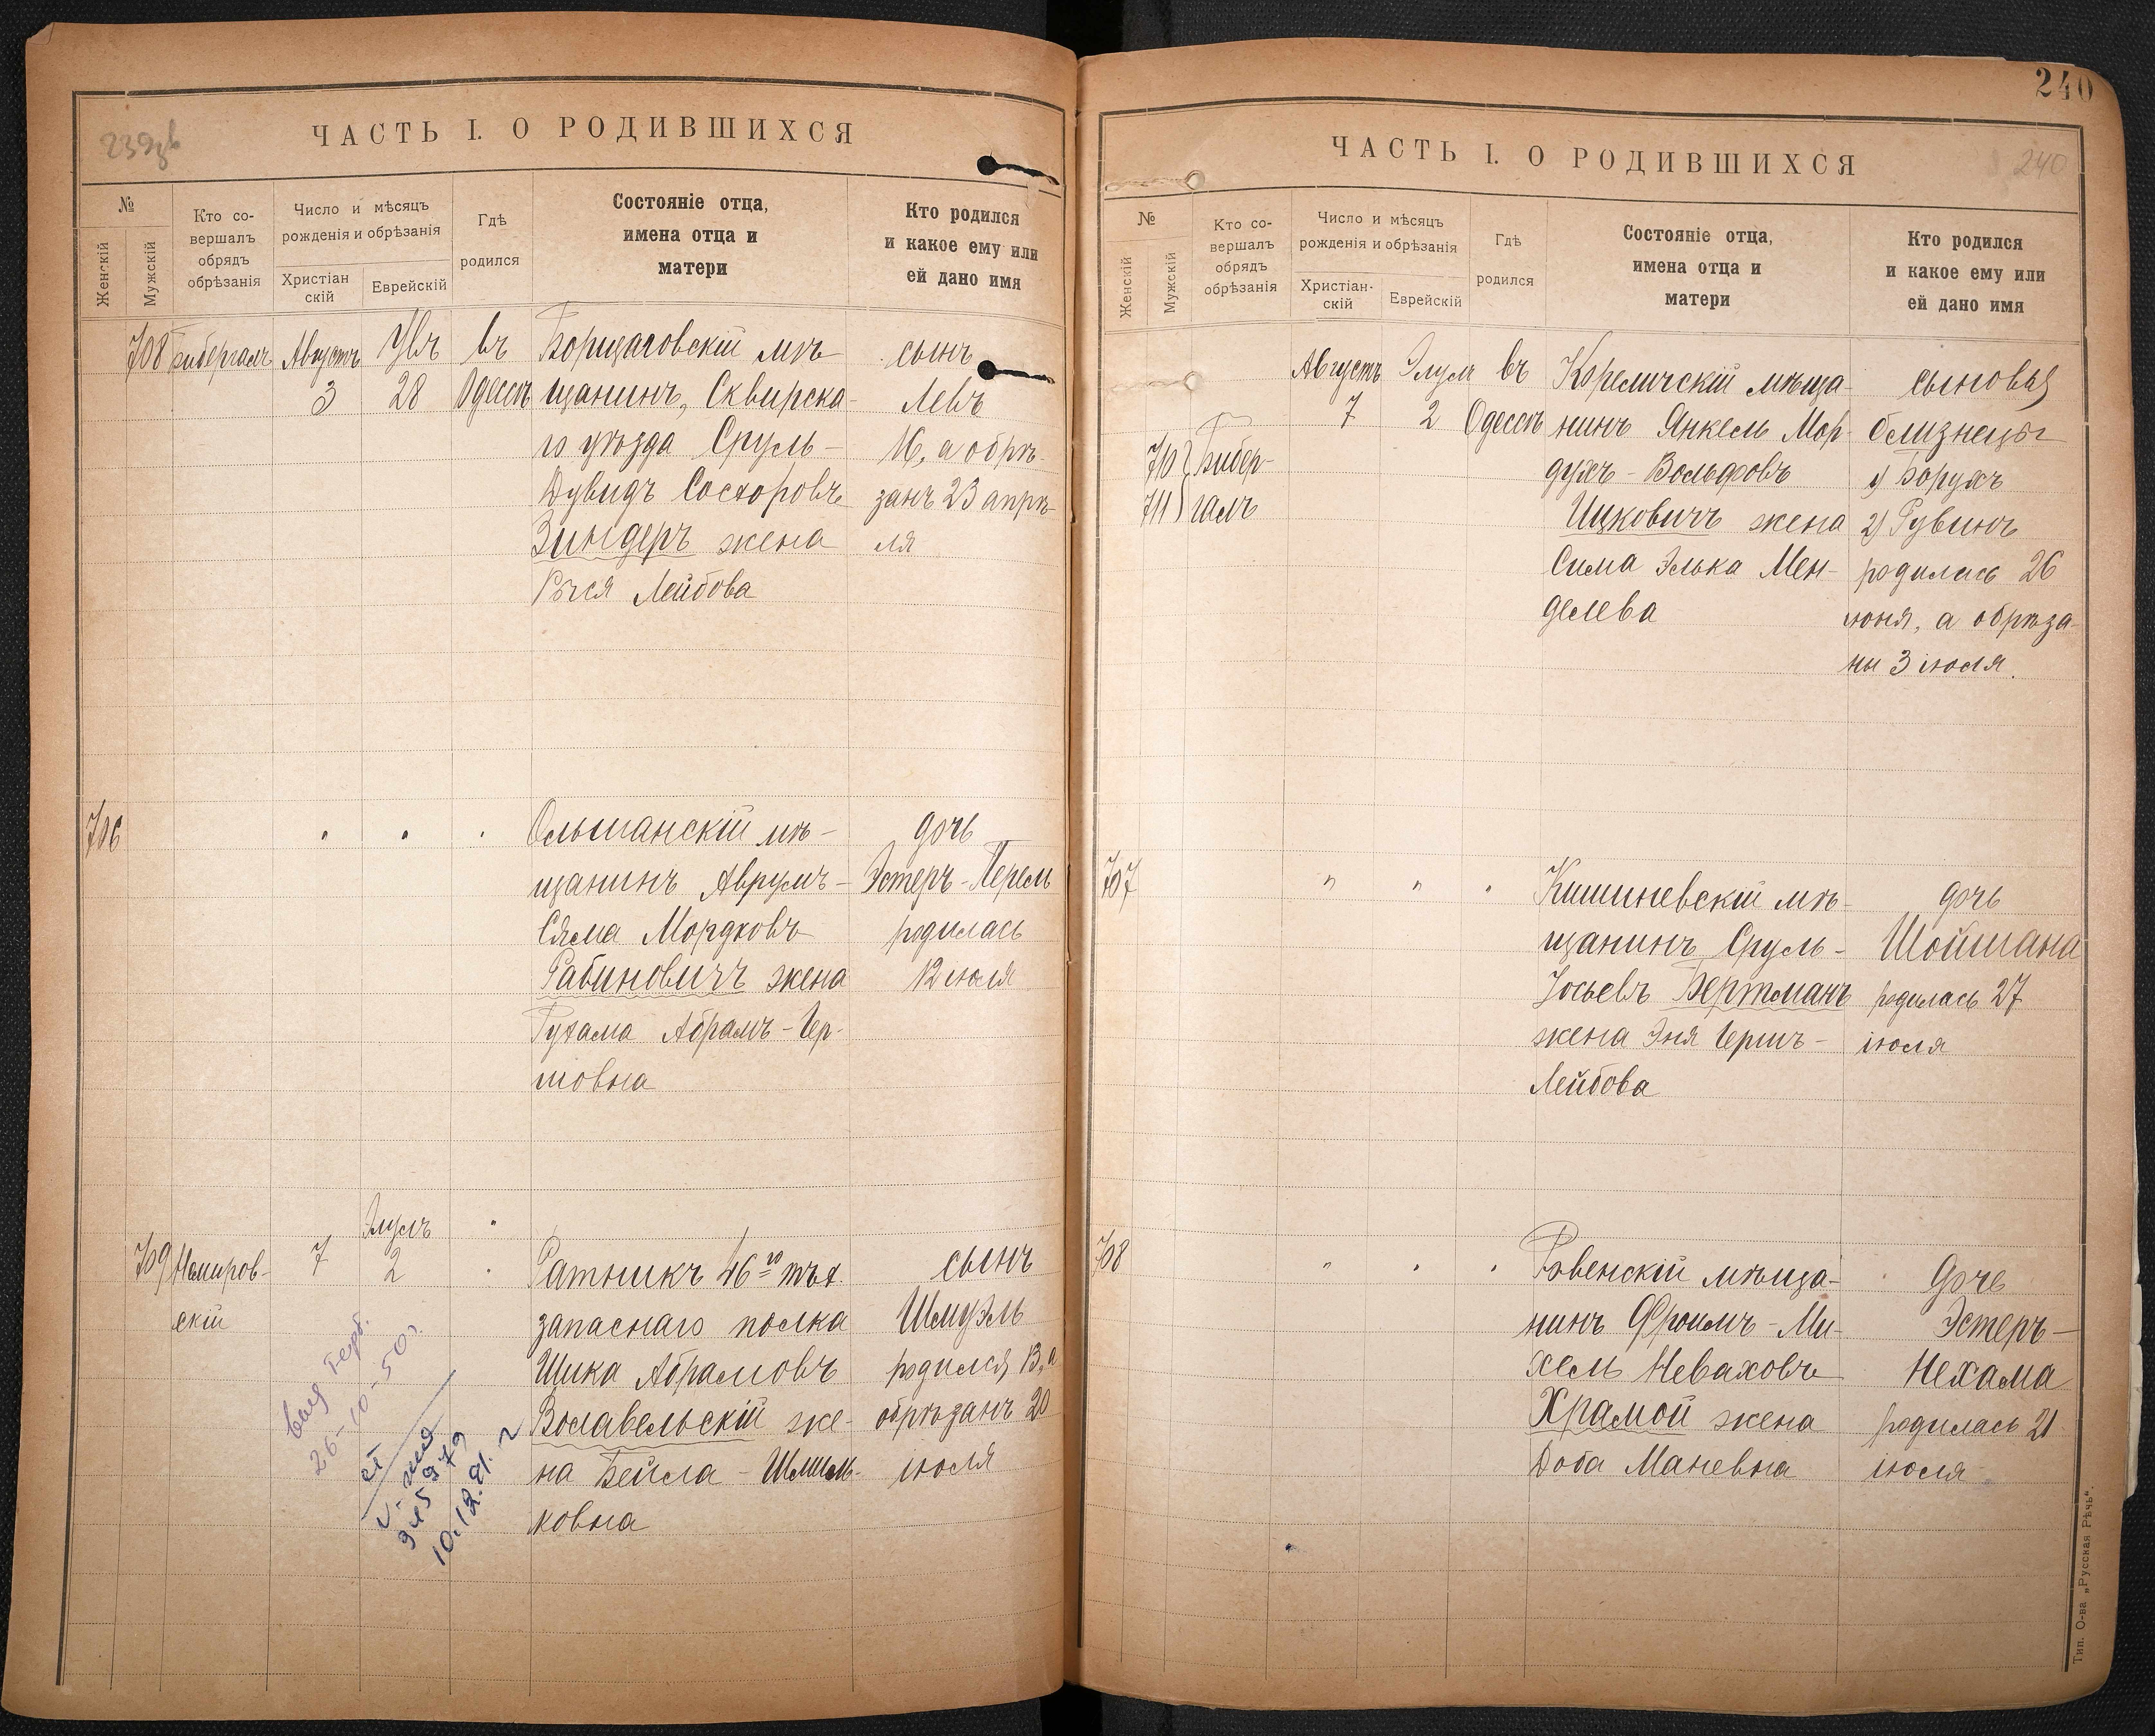 239
ЧАСТЬ I. О РОДИВШИХСЯ
№
Женскій
Мужскій
Кто со-
вершалъ
обрядъ
обрѣзанія
Число и мѣсяцъ
рожденія и обрѣзанія
Христіан
скій
Еврейскій
Гдѣ
родился
Состояніе отца,
имена отца и
матери
Кто родился
и какое ему или
ей дано имя
708 Бибергалъ Августъ 3
28
въ Одессѣ
Борщаговскій мѣ-
щанинъ, Сквирска-
го уѣзда Сруль-
Дувидъ
Зиндеръ жена
Лейбова
сынъ
Левъ
16, а обрѣ-
занъ 23 апрѣ-
ля
706
Ольшанскій мѣ-
щанинъ Аврумъ-
Сяма Мордковъ
Рабиновичъ жена
Рухама Абрамъ-Гер-
шовна
дочь
Эстеръ-Перель
родилась
12 іюля
709 Немиров-
скій
7
Элулъ
2
Ратникъ 46го пѣх.
запаснаго полка
Шика Абрамовъ
Волавельскій же-
на Бейла-Шмиль-
ковна
сынъ
Шмуэль
родился 13, а
обрѣзанъ 20
іюля
26-10-50г.
10.12.81.
240
ЧАСТЬ I. О РОДИВШИХСЯ
240
№
Женскій
Мужскій
Кто со-
вершалъ
обрядъ
обрѣзанія
Число и мѣсяцъ
рожденія и обрѣзанія
Христіан-
скій
Еврейскій
Гдѣ
родился
Состояніе отца,
имена отца и
матери
Кто родился
и какое ему или
ей дано имя
710
711
Бибер-
галъ
Августъ
7
Элулъ
2
въ
Одессѣ
Кореличскій мѣща-
нинъ Янкель Мор-
духъ-Вольфовъ
Ицковичъ жена
Сима Элька Мен-
делева
сыновья
близнецы
1) Борухъ
2) Рувинъ
родились 26
іюня, а обрѣза-
ны 3 іюля.
707
"
"
Кишиневскій мѣ-
щанинъ Сруль-
Іосьевъ Бертманъ
жена Эня Гершъ-
Лейбова
дочь
Шойшана
родилась 27
іюля
708
"
Ровенскій мѣща-
нинъ Фроимъ-Ми-
хель Неваховъ
Храмой жена
Доба Маневна
дочь
Эстеръ-
Нехама
родилась 21
іюля
Тип. О-ва „Русская Рѣчь“.